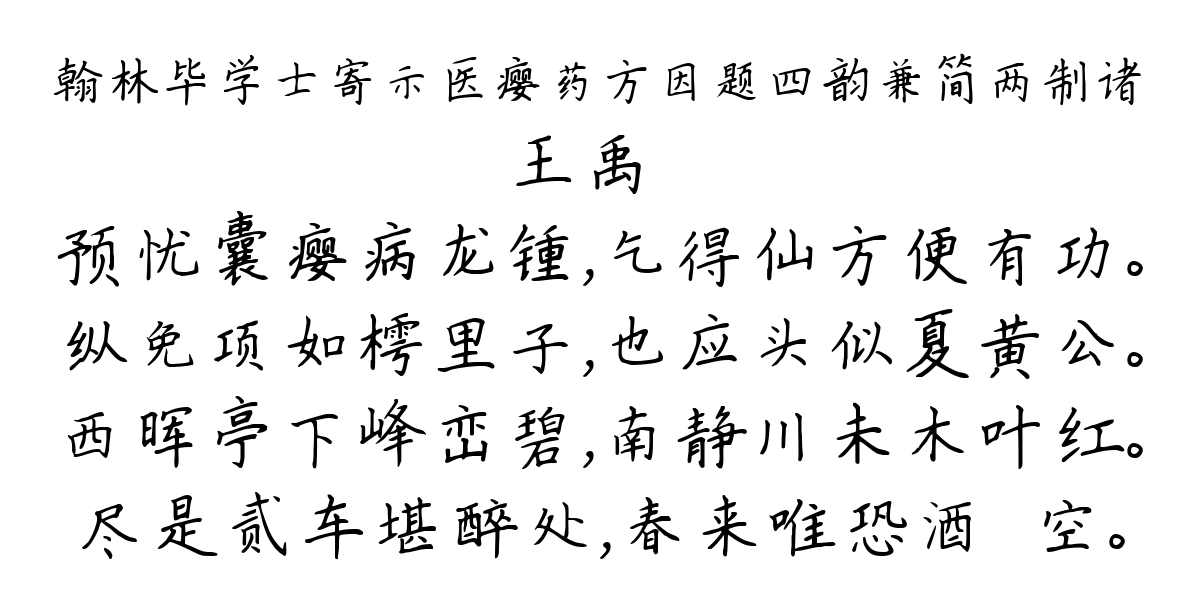 翰林毕学士寄示医瘿药方因题四韵兼简两制诸
王禹
预忧囊瘿病龙锺,乞得仙方便有功。
纵免项如樗里子,也应头似夏黄公。
西晖亭下峰峦碧,南静川未木叶红。
尽是贰车堪醉处,春来唯恐酒 空。